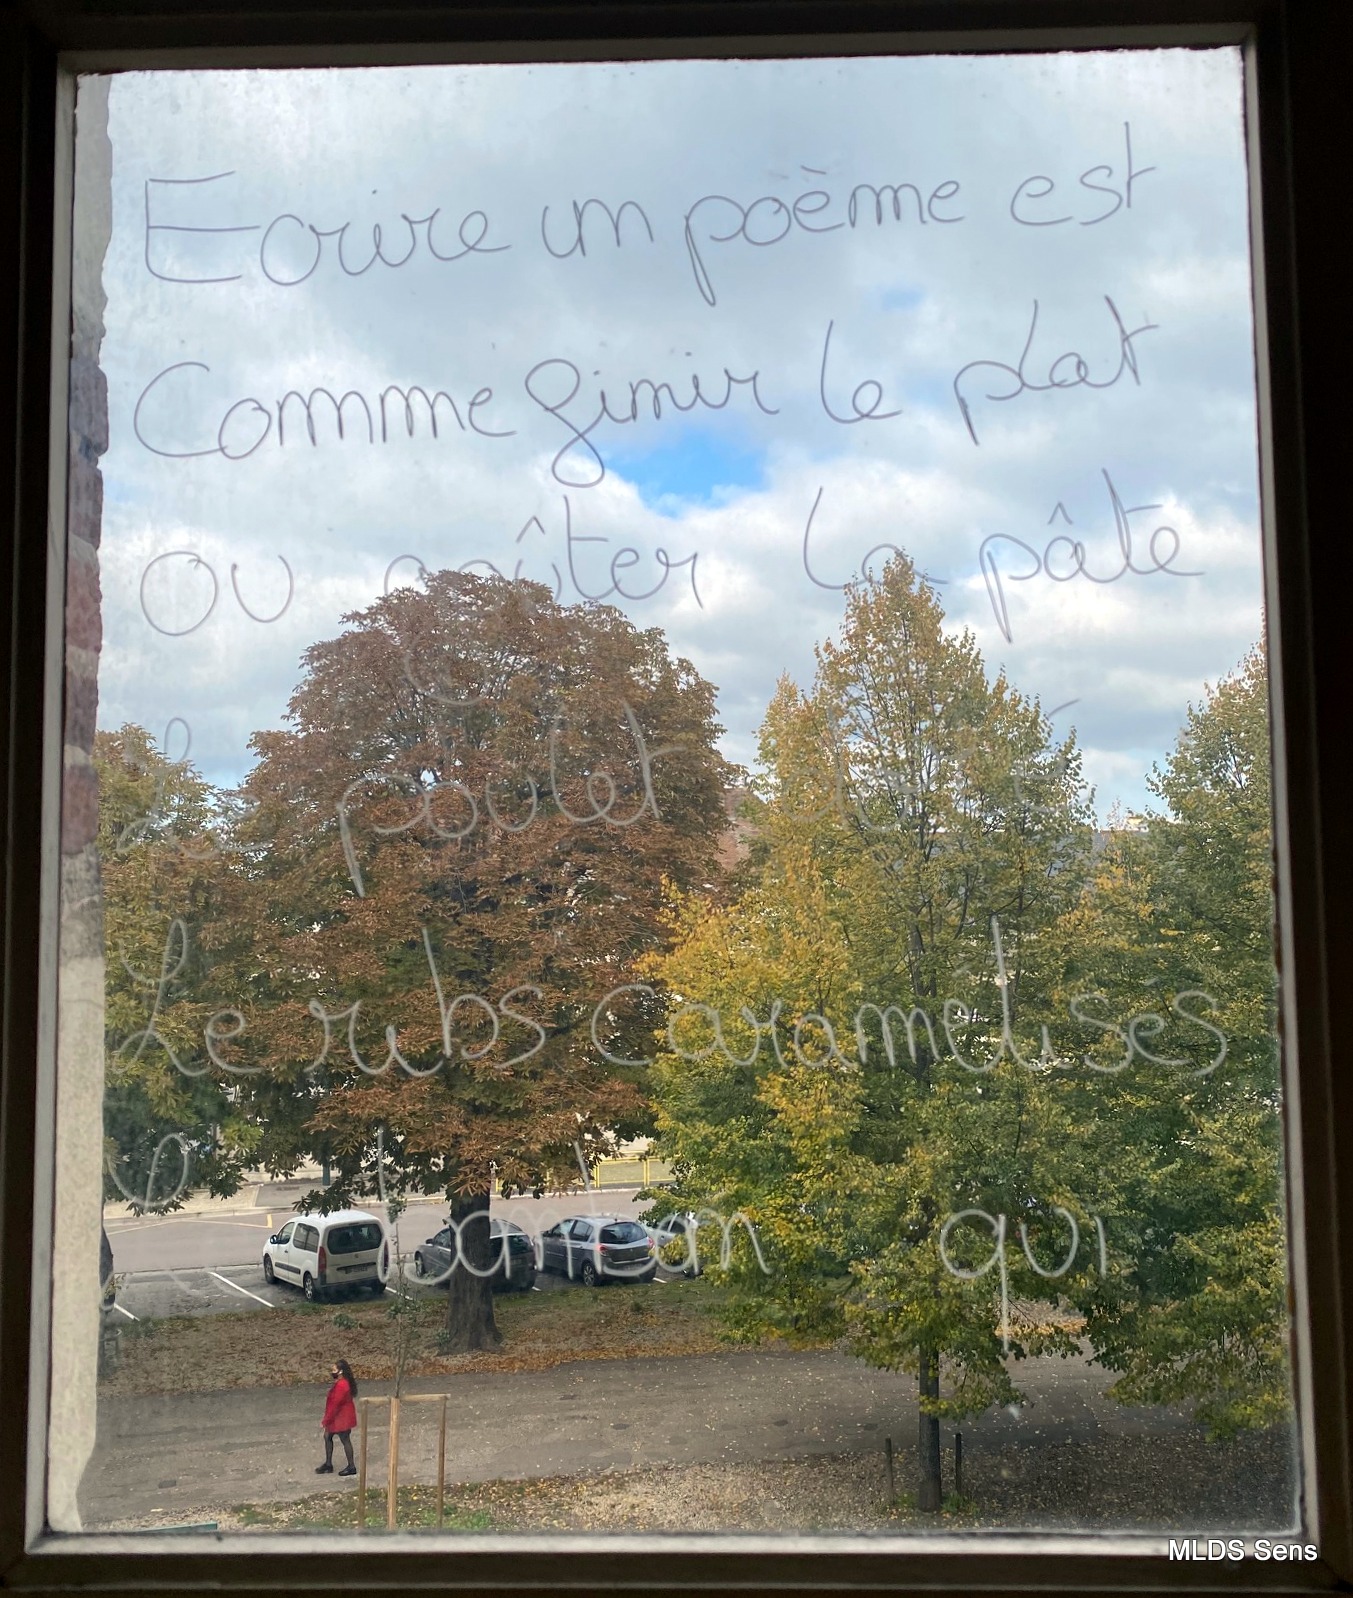 Ecrire un poème est
Comme finir le plat
ou goûter la pâte
Le poulet
Le rubs caramélisés
qui
MLDS Sens